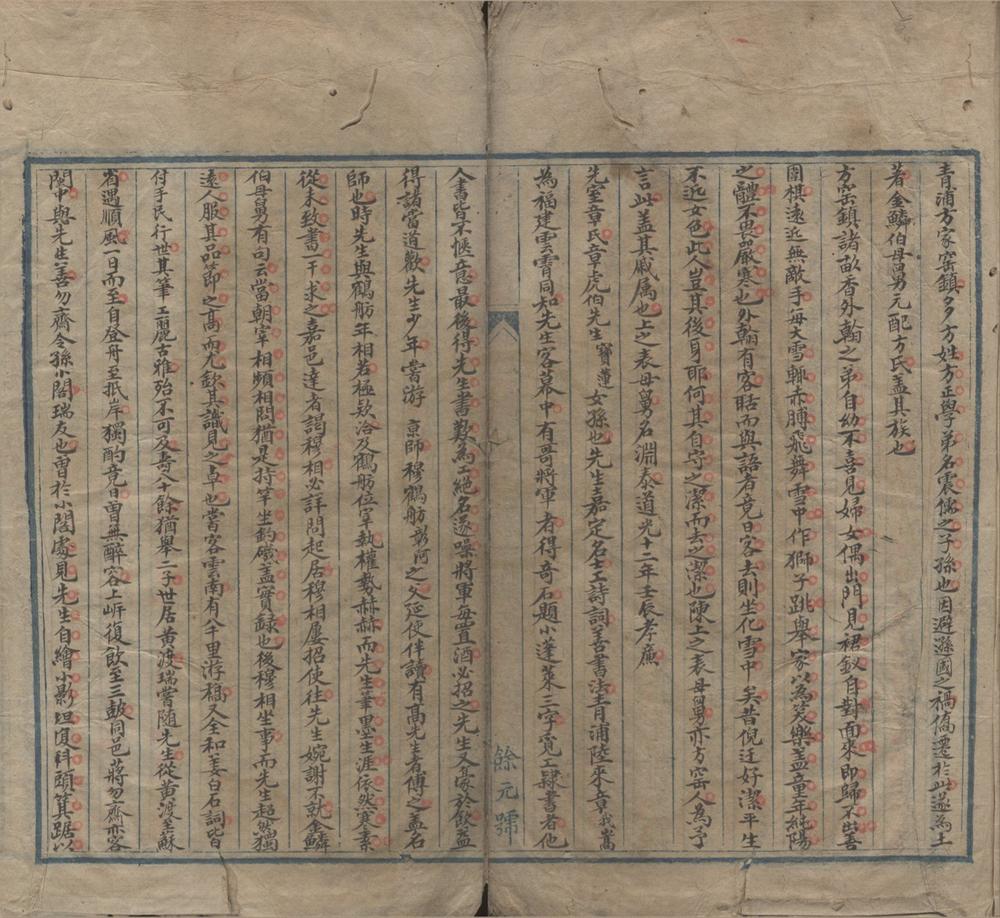 青浦方家窑鎮多方姓方正學弟名震儒之子孫也因避遜國之禍僑遷於此遂為土
著金鱗伯母舅元配方氏蓋其族也
方窑鎮諸畝香外翰之弟自幼不喜見婦女偶出門見裙釵自對面來即歸不出善
圍棋遠近無敵手每大雪輒赤膊飛舞雪中作獅子跳舉家以為笑樂蓋童年純陽
之體不畏嚴寒也外翰有客眊而與語者竟日客去則坐化雪中矣昔倪迂好潔平生
不近女色此人豈其後身耶何其自守之潔而去之潔也陳上之表母舅亦方窑人為予
言此蓋其戚属也上之表母舅名淵泰道光十二年壬辰孝廉
先室章氏章虎伯先生寶蓮女孫也先生嘉定名士工詩詞善書法青浦陸來章我嵩
為福建雲霄同知先生客幕中有哥將軍者得奇石題小蓬萊三字覓工隸書者他
人書皆不愜意最後得先生書歎為工絕名遂噪將軍每置酒必招之先生又豪於飲益
得諸當道歡先生少年嘗游京師穆鶴舫彰阿之父延使伴讀有高先生者傅之蓋名
師也時先生與鶴舫年相若極欵洽及鶴舫位宰執權勢赫赫而先生筆墨生涯依然寒素
從未致書一干求之嘉邑達者謁穆相必詳問起居穆相屢招使往先生婉謝不就金鱗
伯母舅有句云當朝宰相頻相問猶是持竿坐釣磯蓋實録也後穆相坐事而先生超然獨
遠人服其品節之高而尤欽其識見之卓也嘗客雲南有八千里游稿又全和姜白石詞皆
付手民行世其筆工麗古雅殆不可及壽八十餘猶舉二子世居黄渡瑞嘗随先生從黄渡至蘇
省遇順風一日而至自登舟至抵岸獨酌竟日曽無醉容上岍復飲至三鼓同邑蔣勿齋亦客
閩中與先生善勿齋令孫小閣瑞友也曽於小閣處見先生自繪小影坦腹科頭箕踞以
餘元號